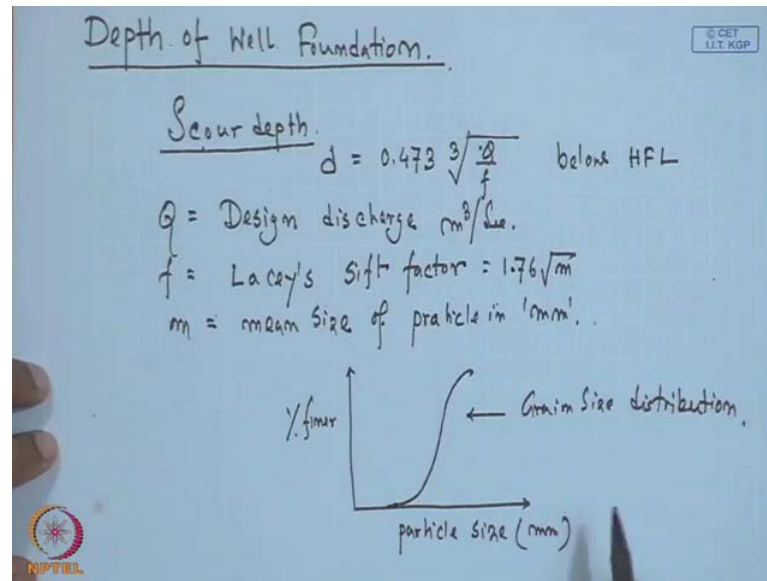 Depth of Well Foundation.
© CET
I.I.T. KGP
Scour depth.
d = 0.473 ∛(Q/f) below HFL
Q = Design discharge m³/Sec.
f = Lacey's Sift factor = 1.76√m
m = mean Size of prahicle in 'mm'.
% finer
← Grain Size distribution.
particle size (mm)
NPTEL